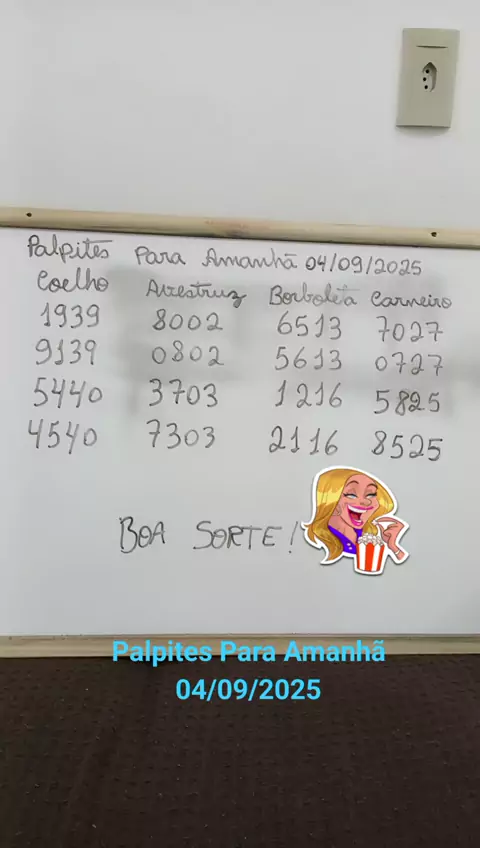 Palpites Para Amanhã 04/09/2025
Coelho Avestruz Borboleta Carneiro
1939 8002 6513 7027
9139 0802 5613 0727
5440 3703 1216 5825
4540 7303 2116 8525
BOA SORTE!
Palpites Para Amanhã
04/09/2025